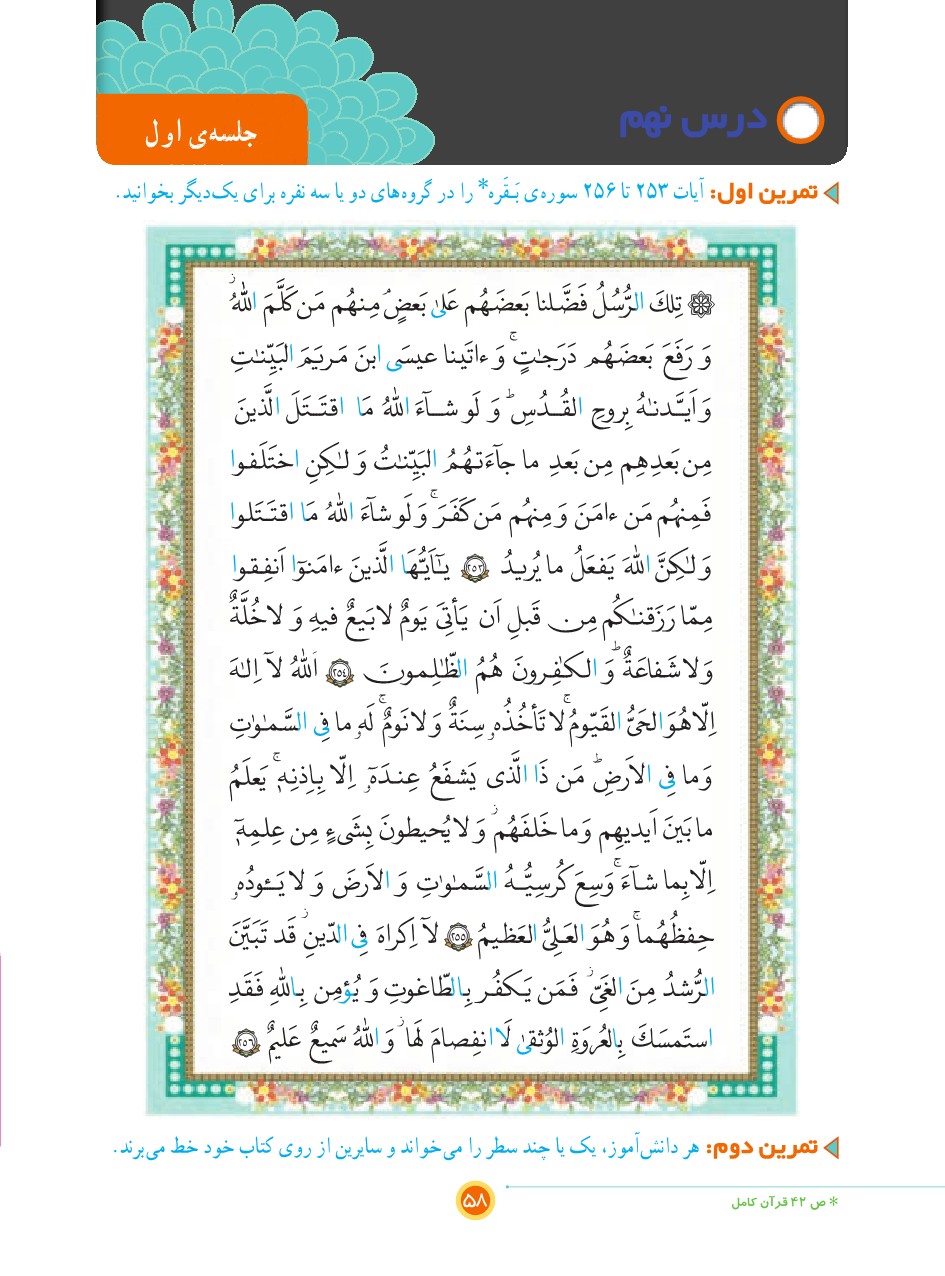 درس نهم
جلسه‌ی اول
تمرین اول: آیات ۲۵۳ تا ۲۵۶ سوره‌ی بَـقَره* را در گروه‌های دو یا سه نفره برای یک‌دیگر بخوانید.
تِلكَ الرُّسُلُ فَضَّلنا بَعضَهُم عَلىٰ بَعضٍۘ مِنهُم مَن كَلَّمَ اللّٰهُۖ
وَ رَفَعَ بَعضَهُم دَرَجٰتٍۚ وَ ءاتَينا عيسَى ابنَ مَريَمَ البَيِّنٰتِ
وَ اَيَّدنٰهُ بِروحِ القُدُسِۗ وَ لَو شآءَ اللّٰهُ مَا اقتَتَلَ الَّذينَ
مِن بَعدِهِم مِن بَعدِ ما جآءَتهُمُ البَيِّنٰتُ وَ لٰكِنِ اختَلَفوا
فَمِنهُم مَن ءامَنَ وَ مِنهُم مَن كَفَرَۚ وَ لَو شآءَ اللّٰهُ مَا اقتَتَلوا
وَ لٰكِنَّ اللّٰهَ يَفعَلُ ما يُريدُ ﴿۲۵۳﴾ يٰٓاَيُّهَا الَّذينَ ءامَنوٓا اَنفِقوا
مِمّا رَزَقنٰكُم مِن قَبلِ اَن يَأتِیَ يَومٌ لا بَيعٌ فيهِ وَ لا خُلَّةٌ
وَ لا شَفاعَةٌۗ وَ الكٰفِرونَ هُمُ الظّٰلِمونَ ﴿۲۵۴﴾ اَللّٰهُ لآ اِلٰهَ
اِلّا هُوَ الحَیُّ القَيّومُۚ لا تَأخُذُهٗ سِنَةٌ وَ لا نَومٌۚ لَهٗ ما فِی السَّمٰوٰتِ
وَ ما فِی الاَرضِۗ مَن ذَا الَّذی يَشفَعُ عِندَهٗٓ اِلّا بِاِذنِهٖۚ يَعلَمُ
ما بَينَ اَيديهِم وَ ما خَلفَهُمۖ وَ لا يُحيطونَ بِشَیءٍ مِن عِلمِهٖٓ
اِلّا بِما شآءَۚ وَسِعَ كُرسِيُّهُ السَّمٰوٰتِ وَ الاَرضَ وَ لا يَـئودُهٗ
حِفظُهُماۚ وَ هُوَ العَلِیُّ العَظيمُ ﴿۲۵۵﴾ لآ اِكراهَ فِی الدّينِۖ قَد تَبَيَّنَ
الرُّشدُ مِنَ الغَیِّۚ فَمَن يَكفُر بِالطّاغوتِ وَ يُؤمِن بِاللّٰهِ فَقَدِ
استَمسَكَ بِالعُروَةِ الوُثقىٰ لَا انفِصامَ لَهاۗ وَ اللّٰهُ سَميعٌ عَليمٌ ﴿۲۵۶﴾
تمرین دوم: هر دانش‌آموز، یک یا چند سطر را می‌خواند و سایرین از روی کتاب خود خط می‌برند.
* ص ۴۲ قرآن کامل
۵۸